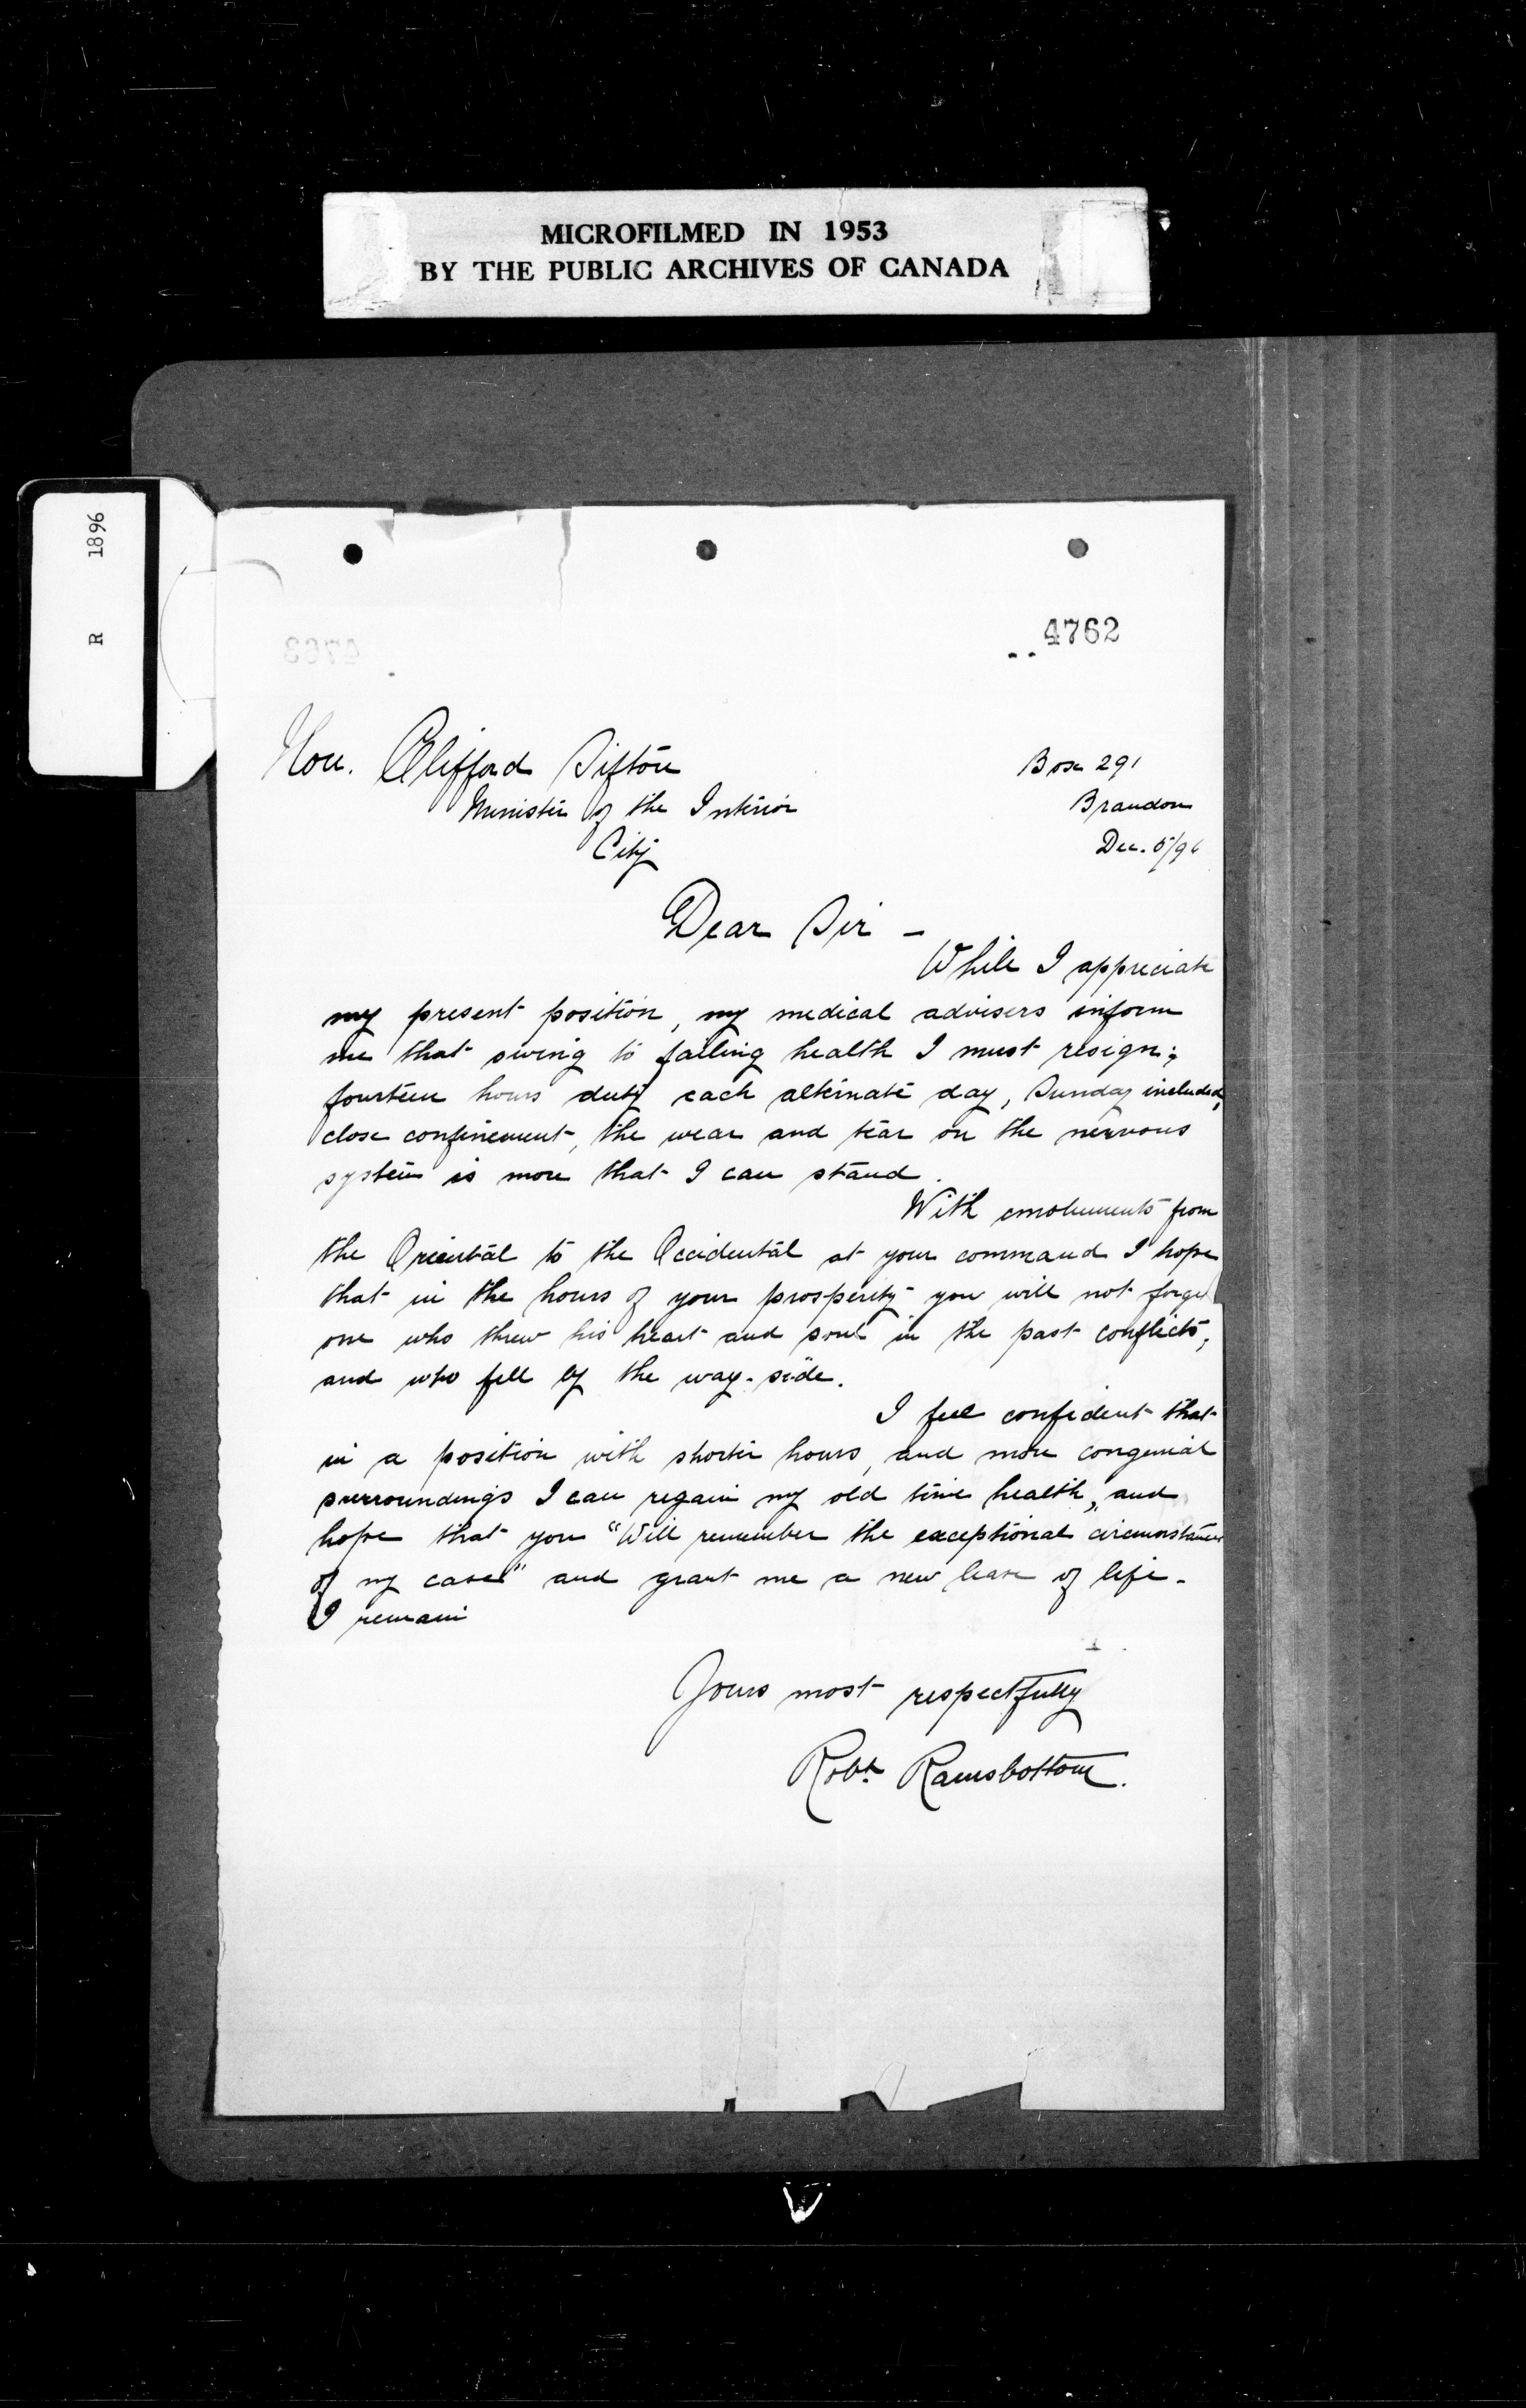 MICROFILMED IN 1953
BY THE PUBLIC ARCHIVES OF CANADA
R 1896
4762
Hon. Clifford Sifton
Minister of the Interior
City
Box 291
Brandon
Dec. 5/96
Dear Sir -
While I appreciate
my present position, my medical advisers inform
me that owing to failing health I must resign;
fourteen hours duty each alternate day, Sunday included,
close confinement, the wear and tear on the nervous
system is more that I can stand.
With emoluments from
the Oriental to the Occidental at your command I hope
that in the hours of your prosperity you will not forget
one who threw his heart and soul in the past conflicts,
and who fell by the way-side.
I feel confident that
in a position with shorter hours, and more congenial
surroundings I can regain my old time health, and
hope that you "Will remember the exceptional circumstances
of my case" and grant me a new lease of life -
I remain
Yours most respectfully
Robt Ramsbottom.